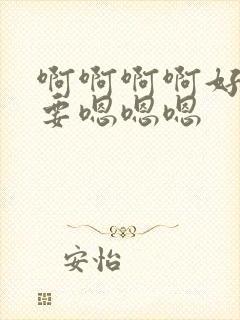 啊啊啊啊好
要嗯嗯嗯
安怡